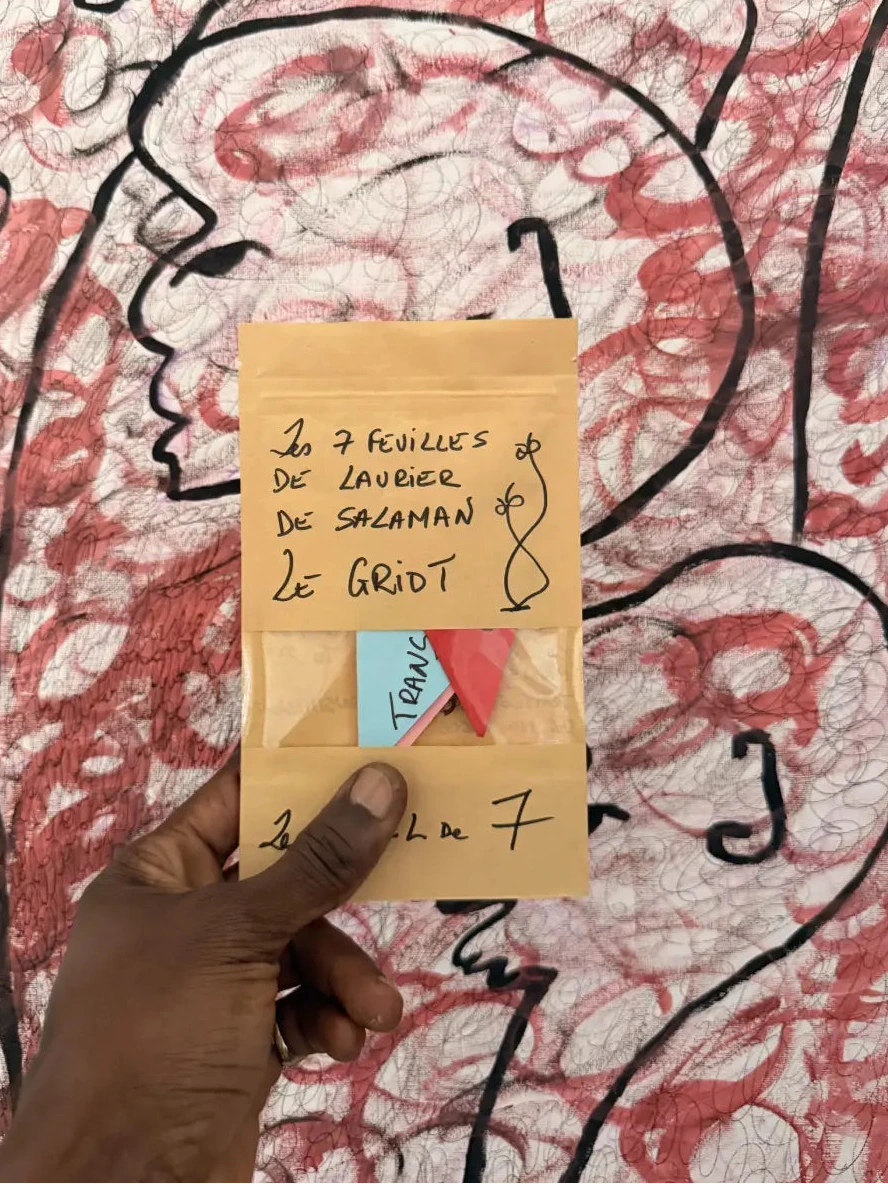 Les 7 FEUILLES
DE LAURIER
DE SALAMAN
LE GRIOT
TRANS
Le L De 7